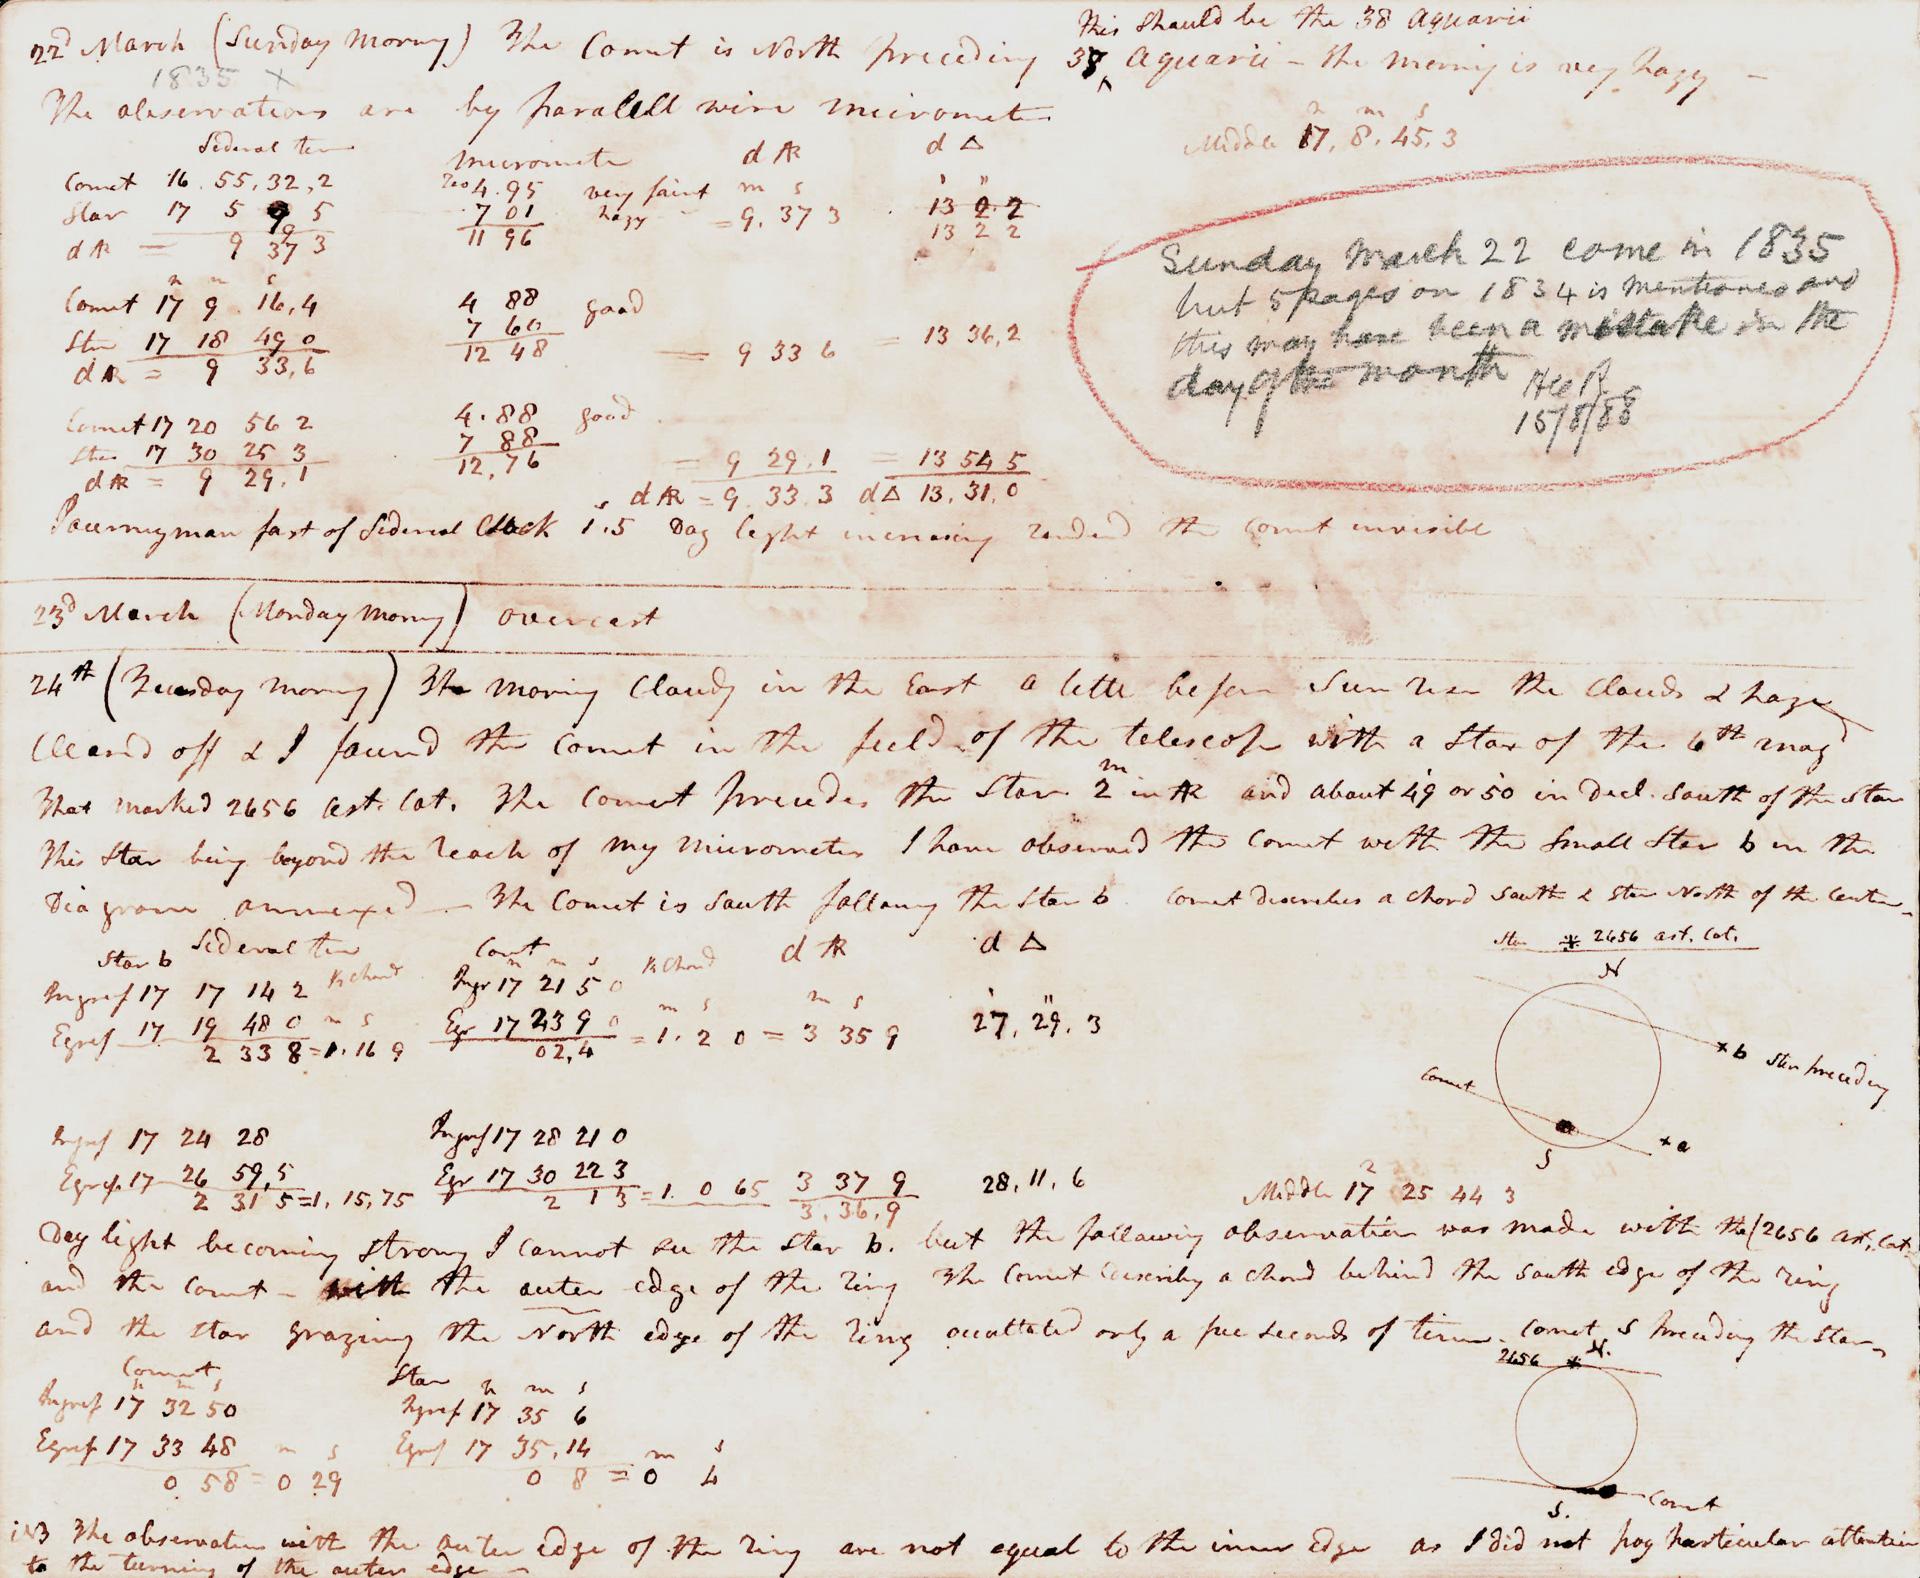 This should be the 38 Aquarii
22d March (Sunday Morng) The Comet is North preceding 38 Aquarii – the morning is very hazy –
1835 X
The observations are by parallell wire micrometer
Middle 17h, 8m. 45s, 3
Sideral time Micrometer d AR d Δ
Comet 16. 55, 32, 2 Zero 4.95 very faint m s ' "
Star 17 5 9 5 7 01 hazy = 9. 37 3 13 2.2
d AR = 9 37 3 11 96 13 2 2
h m s
Comet 17 9. 16,4 4 88 good
Star 17 18 49 0 7 60
d AR = 9 33,6 12 48 = 9 33 6 = 13 36,2
Comet 17 20 56 2 4.88 good
Star 17 30 25 3 7 88
d AR = 9 29.1 12,76 = 9 29.1 = 13 54 5
d AR = 9. 33. 3 d Δ 13, 31, 0
Sunday March 22 come in 1835
but 5 pages on 1834 is mentioned and
this may have been a mistake in the
day of the month
15/8/88
Journeyman fast of Sideral Clock 1s.5 Day light increasing renderd the Comet invisible
23d March (Monday Morng) overcast
24th (Tuesday Morng) The Morning Cloudy in the East a little before Sun rise the Clouds & haze
Cleared off & I found the Comet in the field of the telescope with a Star of the 6th mag
that marked 2656 ast. Cat. The Comet precedes the Star 2m in AR and about 49' or 50' in Decl. South of the Star
This Star being beyond the reach of my micrometer I have observed the Comet with the Small Star b in the
Diagram annexed – The Comet is South following the Star b Comet describes a chord South & Star North of the Center
Star b Sideral time Comet d AR d Δ
Star * 2656 ast. Cat.
N
Ingress 17 17 14 2 ½ chord Ingr 17 21 5 0 ½ Chord
Egress 17 19 48 0 m s Egr 17 23 9 0 = 1. 2 0 = 3 35 9 27, 29. 3
2 33 8 = 1. 16 9 02,4
b Star preceding
Comet
a
S
Ingress 17 24 28 Ingress 17 28 21 0
Egress 17 26 59,5 Egr 17 30 22 3 28, 11, 6
2 31 5 = 1, 15,75 2 1 3 = 1. 0 65 3 37 9
3. 36. 9
Middle 17 25 44 3
Day light becoming strong I cannot see the Star b. but the following observation was made with the (2656 ast. Cat.
and the Comet – with the outer edge of the ring The Comet describing a chord behind the South edge of the ring
and the star grazing the North edge of the ring occultated only a few seconds of time. Comet S preceding the Star
Comet Star
h m s h m s
Ingress 17 32 50 Ingress 17 35 6
Egress 17 33 48 Egress 17 35, 14
0 58 = 0 29 0 8 = 0 4
2656 * N.
Comet
S.
The observation with the outer edge of the ring are not equal to the inner edge as I did not pay particular attention
to the turning of the outer edge –